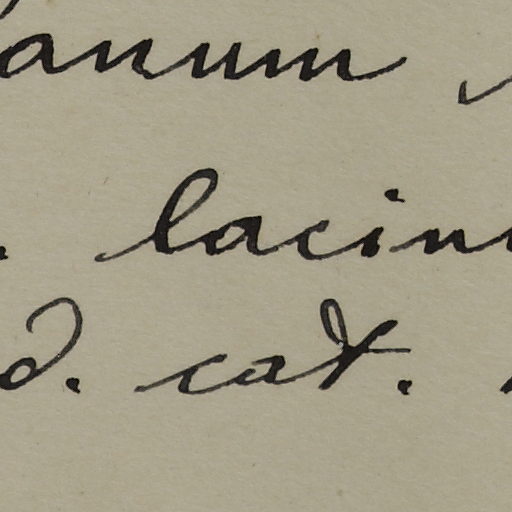 anum
. lacin
d. cat.